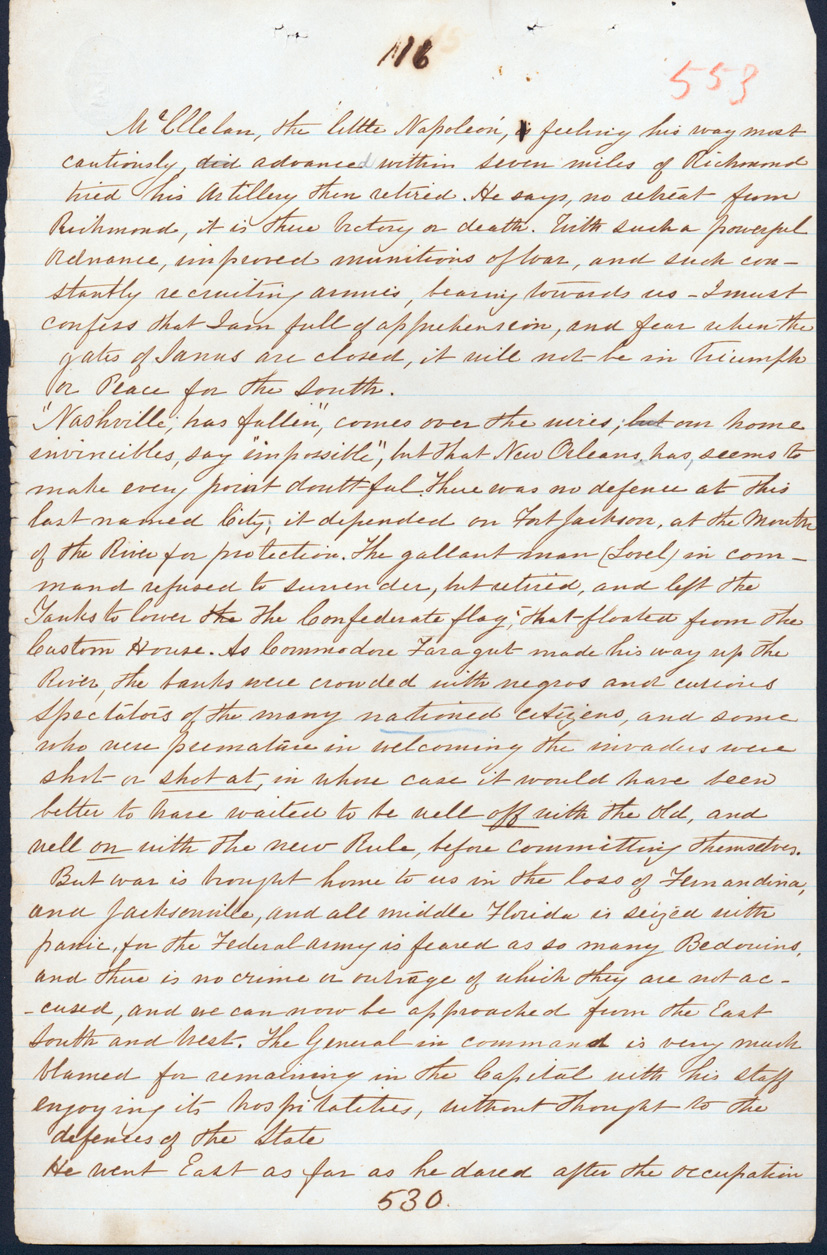 116
553
McCllelan, the little Napoleon, feeling his way most
cautiously, did advanced within seven miles of Richmond
tried his Artillery then retired. He says, no retreat from
Richmond, it is there Victory or death. With such a powerful
Ordnance, improved munitions of War, and such con-
stantly recruiting armies, bearing towards us - I must
confess that I am full of apprehension, and fear when the
gates of Janus are closed, it will not be in Triumph
or Peace for the South.
"Nashville, has fallen", comes over the wires, but our home
invincibles, say "impossible", but that New Orleans, has, seems to
make every point doubtful. There was no defence at this
last named City, it depended on Fort Jackson, at the Mouth
of the River for protection. The gallant man (Lovel) in com-
mand refused to surrender, but retired, and left the
Yanks to lower the the Confederate flag, that floated from the
Custom House. As Commodore Faragut made his way up the
River, the banks were crowded with negros and curious
spectators of the many nationed citizens, and some
who were premature in welcoming the invaders were
shot or shot at, in whose case it would have been
better to have waited to be well off with the Old, and
well on with the new Rule, before committing themselves.
But war is brought home to us in the loss of Fernandina,
and Jacksonville, and all middle Florida is seized with
panic, for the Federal army is feared as so many Bedouins,
and there is no crime or outrage of which they are not ac-
-cused, and we can now be approached from the East
South and West. The General in command is very much
blamed for remaining in the Capital with his staff
enjoying its hospitalities, without thought to the
defences of the State
He went East as far as he dared after the occupation
530.